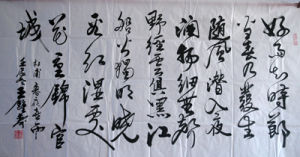 好雨知時節
當春乃發生
随風潛入夜
潤物細無聲
野徑雲俱黑江
船火獨明曉
看紅濕處
花重錦官
城
杜甫春夜喜雨